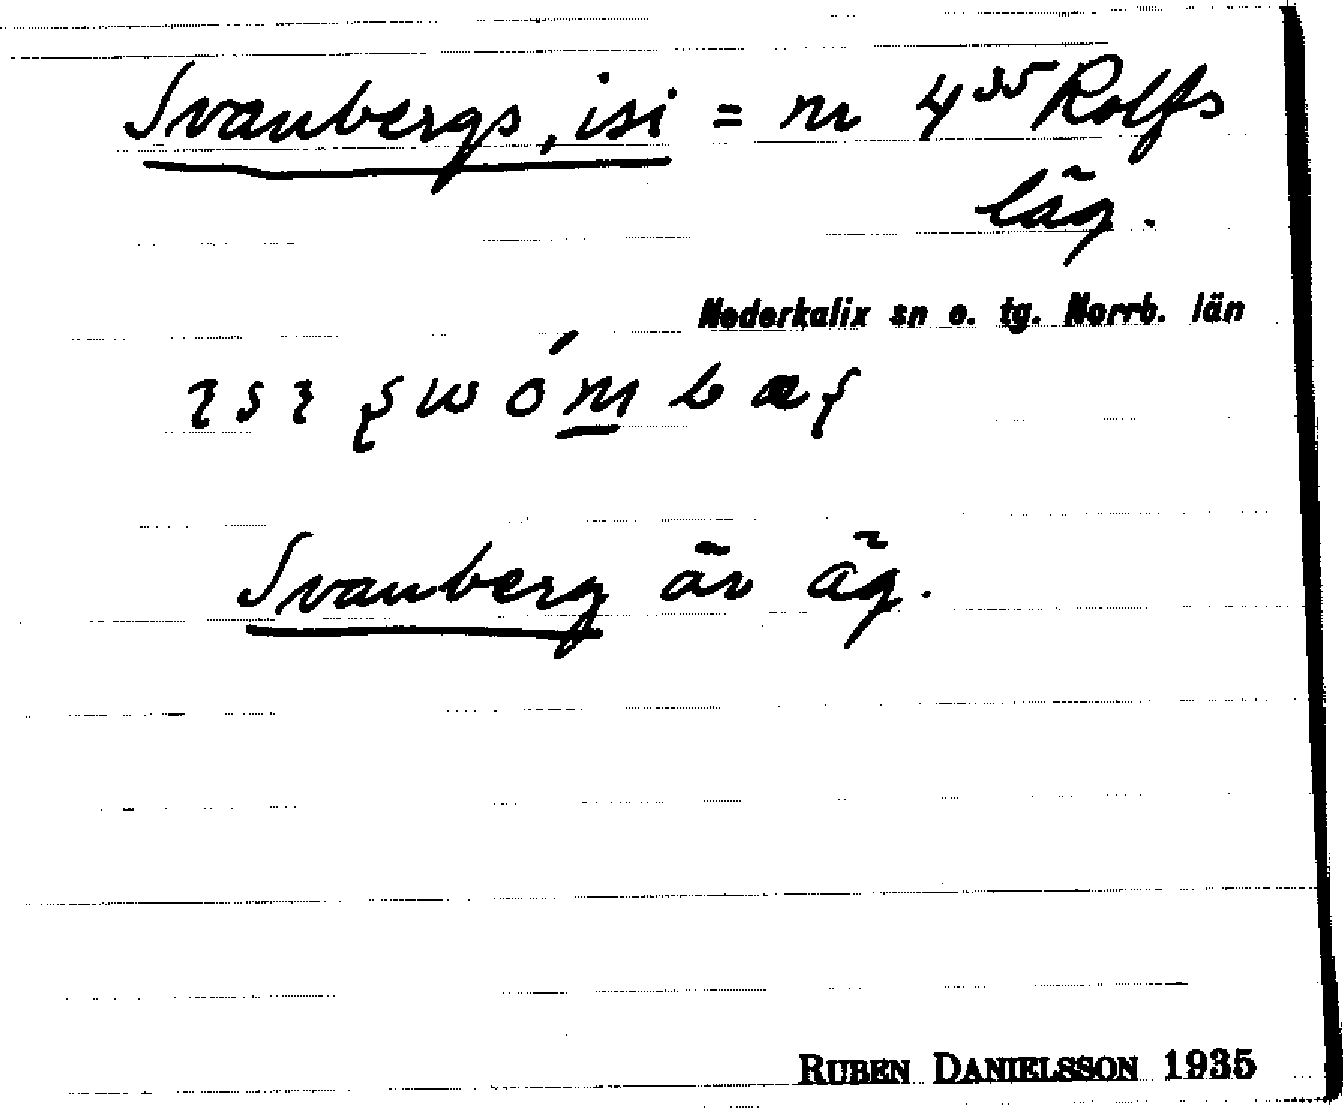 Svanbergs, isi = nr 4³⁵ Rolfs
läg.
Nederkalix sn o. tg. Norrb. län
Svanberg är äg.
RUBEN DANIELSSON 1935